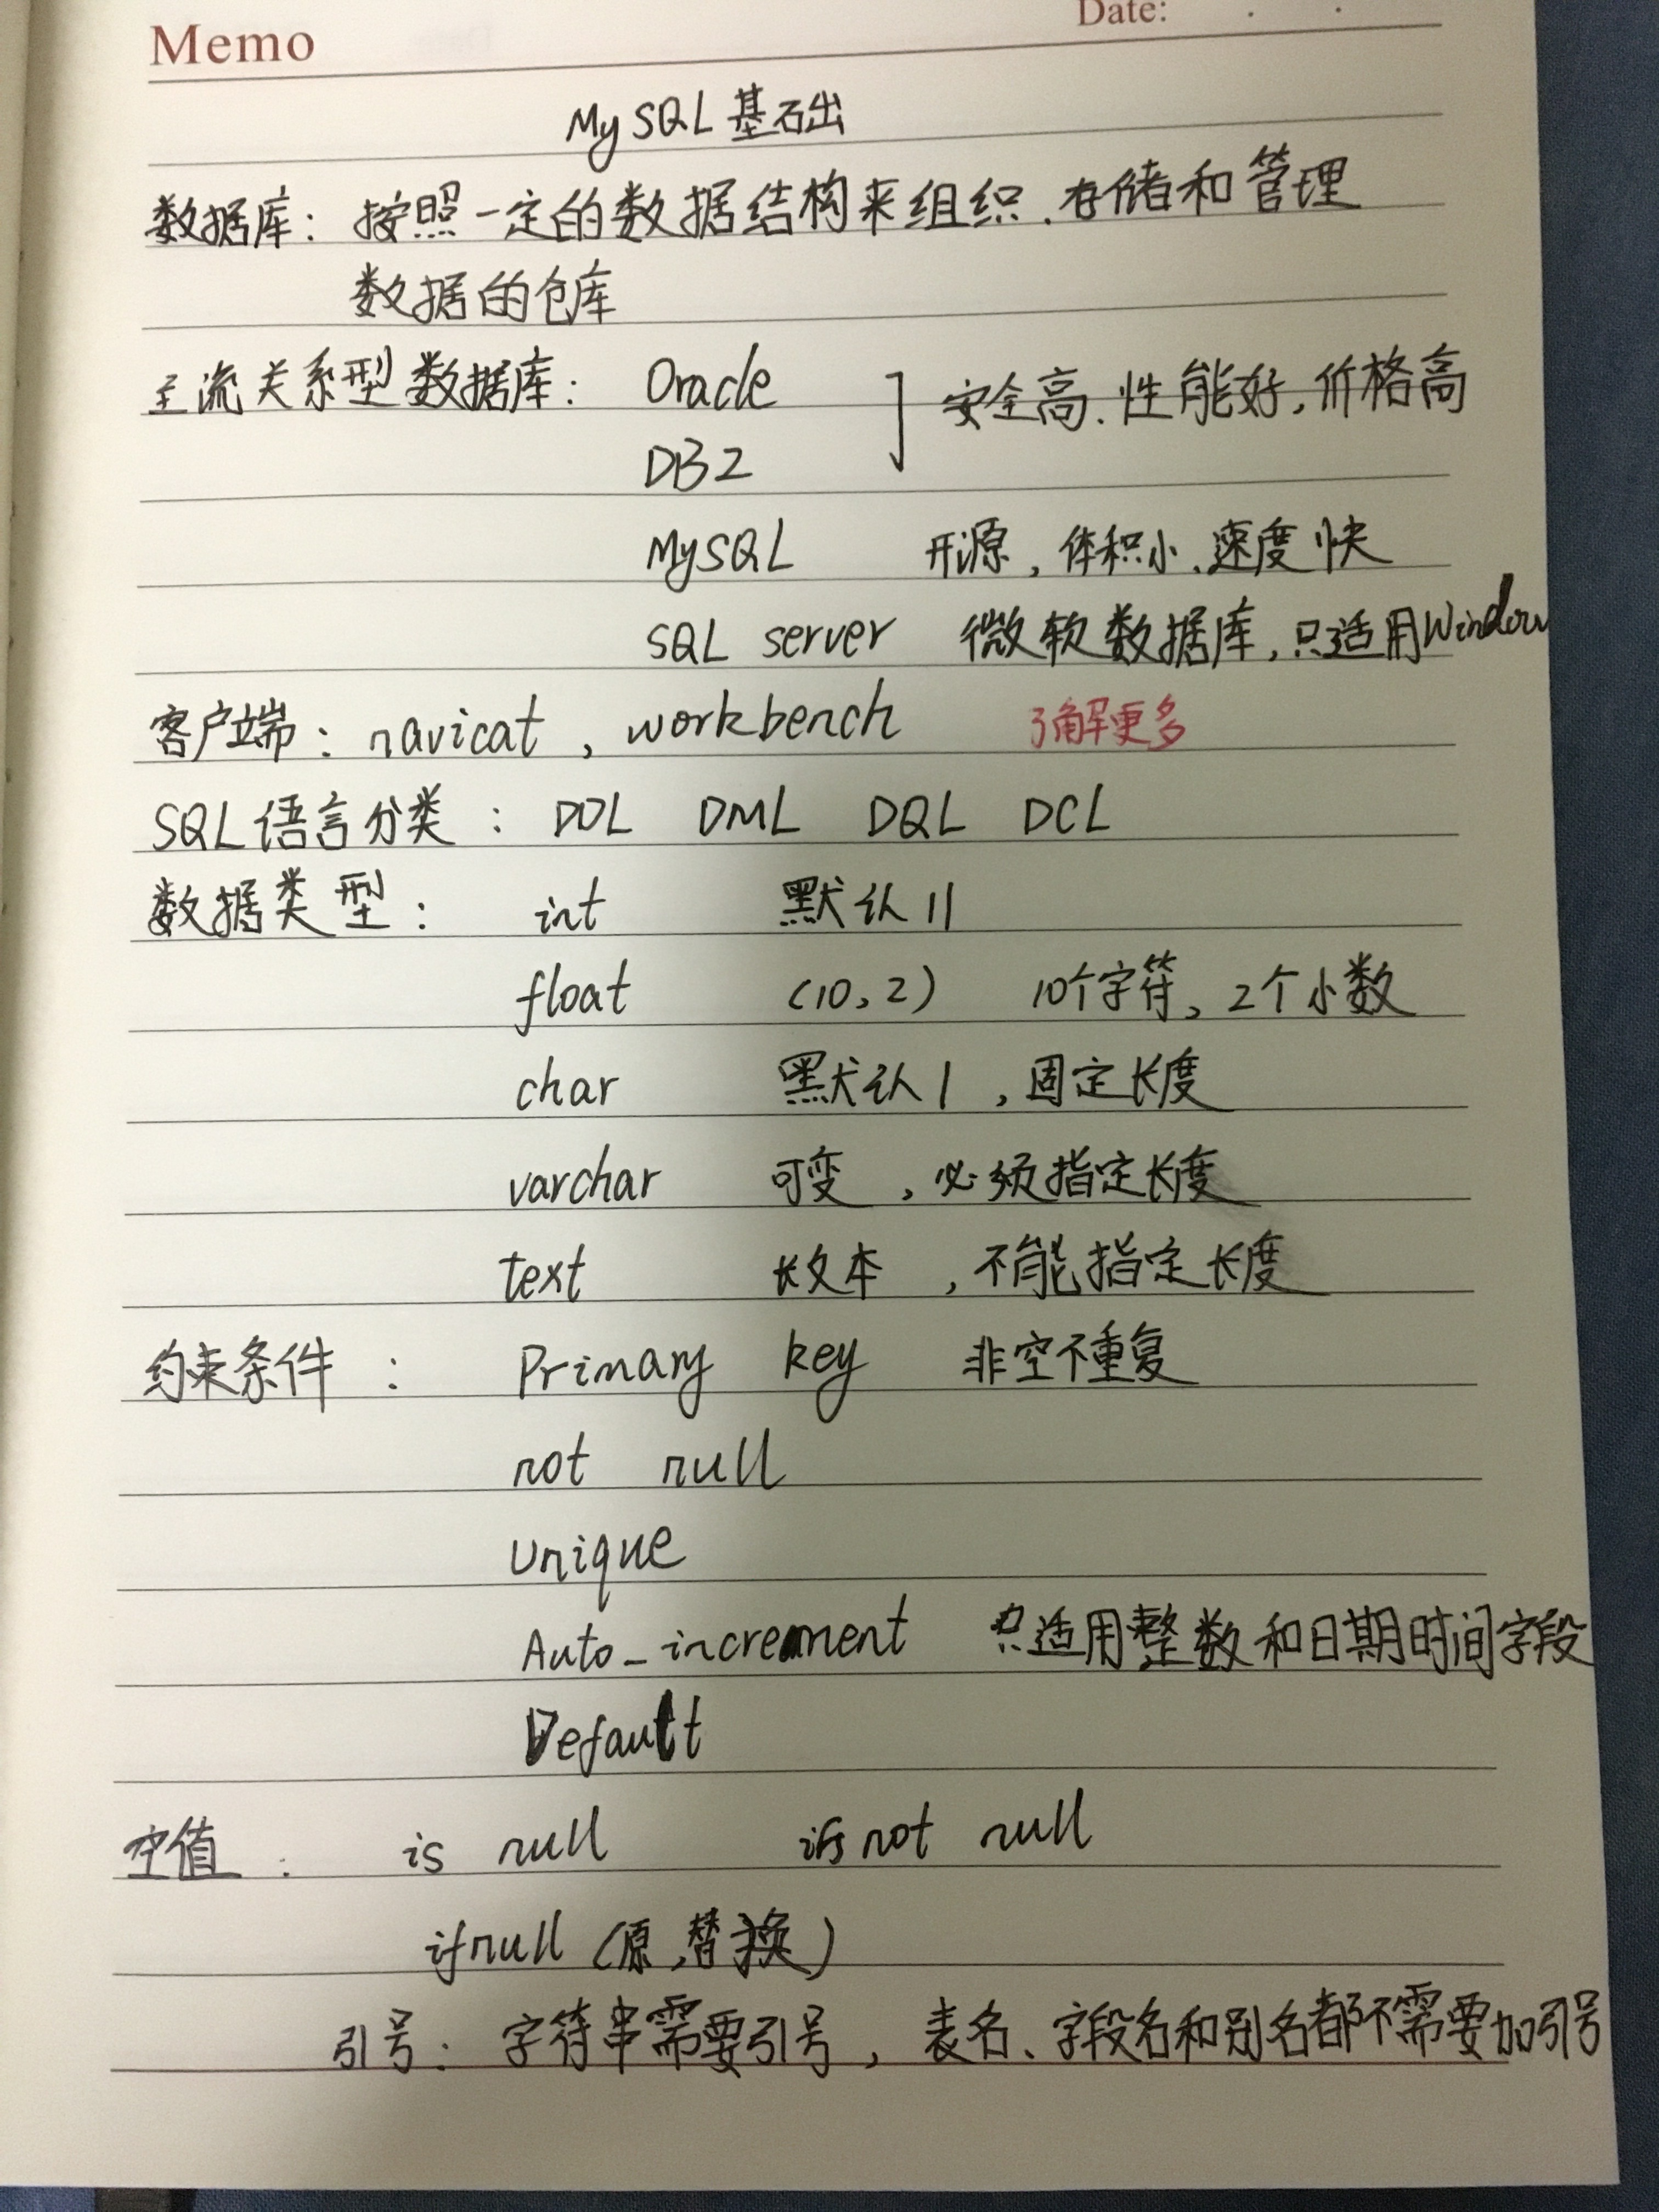 Memo Date: . .
MySQL基础
数据库：按照一定的数据结构来组织、存储和管理
数据的仓库
主流关系型数据库： Oracle ] 安全高、性能好，价格高
DB2
MySQL 开源，体积小、速度快
SQL server 微软数据库，只适用Window
客户端：navicat，workbench 了解更多
SQL语言分类： DDL DML DQL DCL
数据类型： int 默认11
float (10,2) 10个字符，2个小数
char 默认1，固定长度
varchar 可变，必须指定长度
text 长文本，不能指定长度
约束条件： Primary key 非空不重复
not null
Unique
Auto_increment 只适用整数和日期时间字段
Default
空值： is null is not null
ifnull(原，替换)
引号：字符串需要引号，表名、字段名和别名都不需要加引号